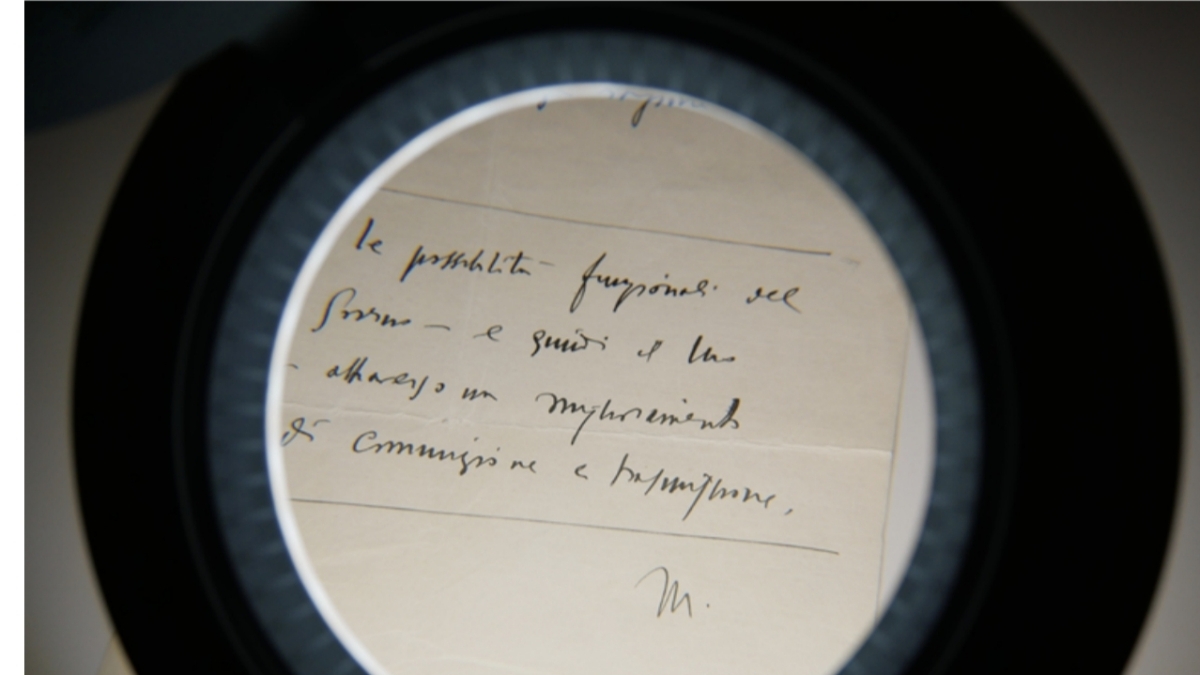 le possibilità funzionali del
Governo — e quindi il suo
- attraverso un miglioramento
di comunizione e trasmissione,
M.